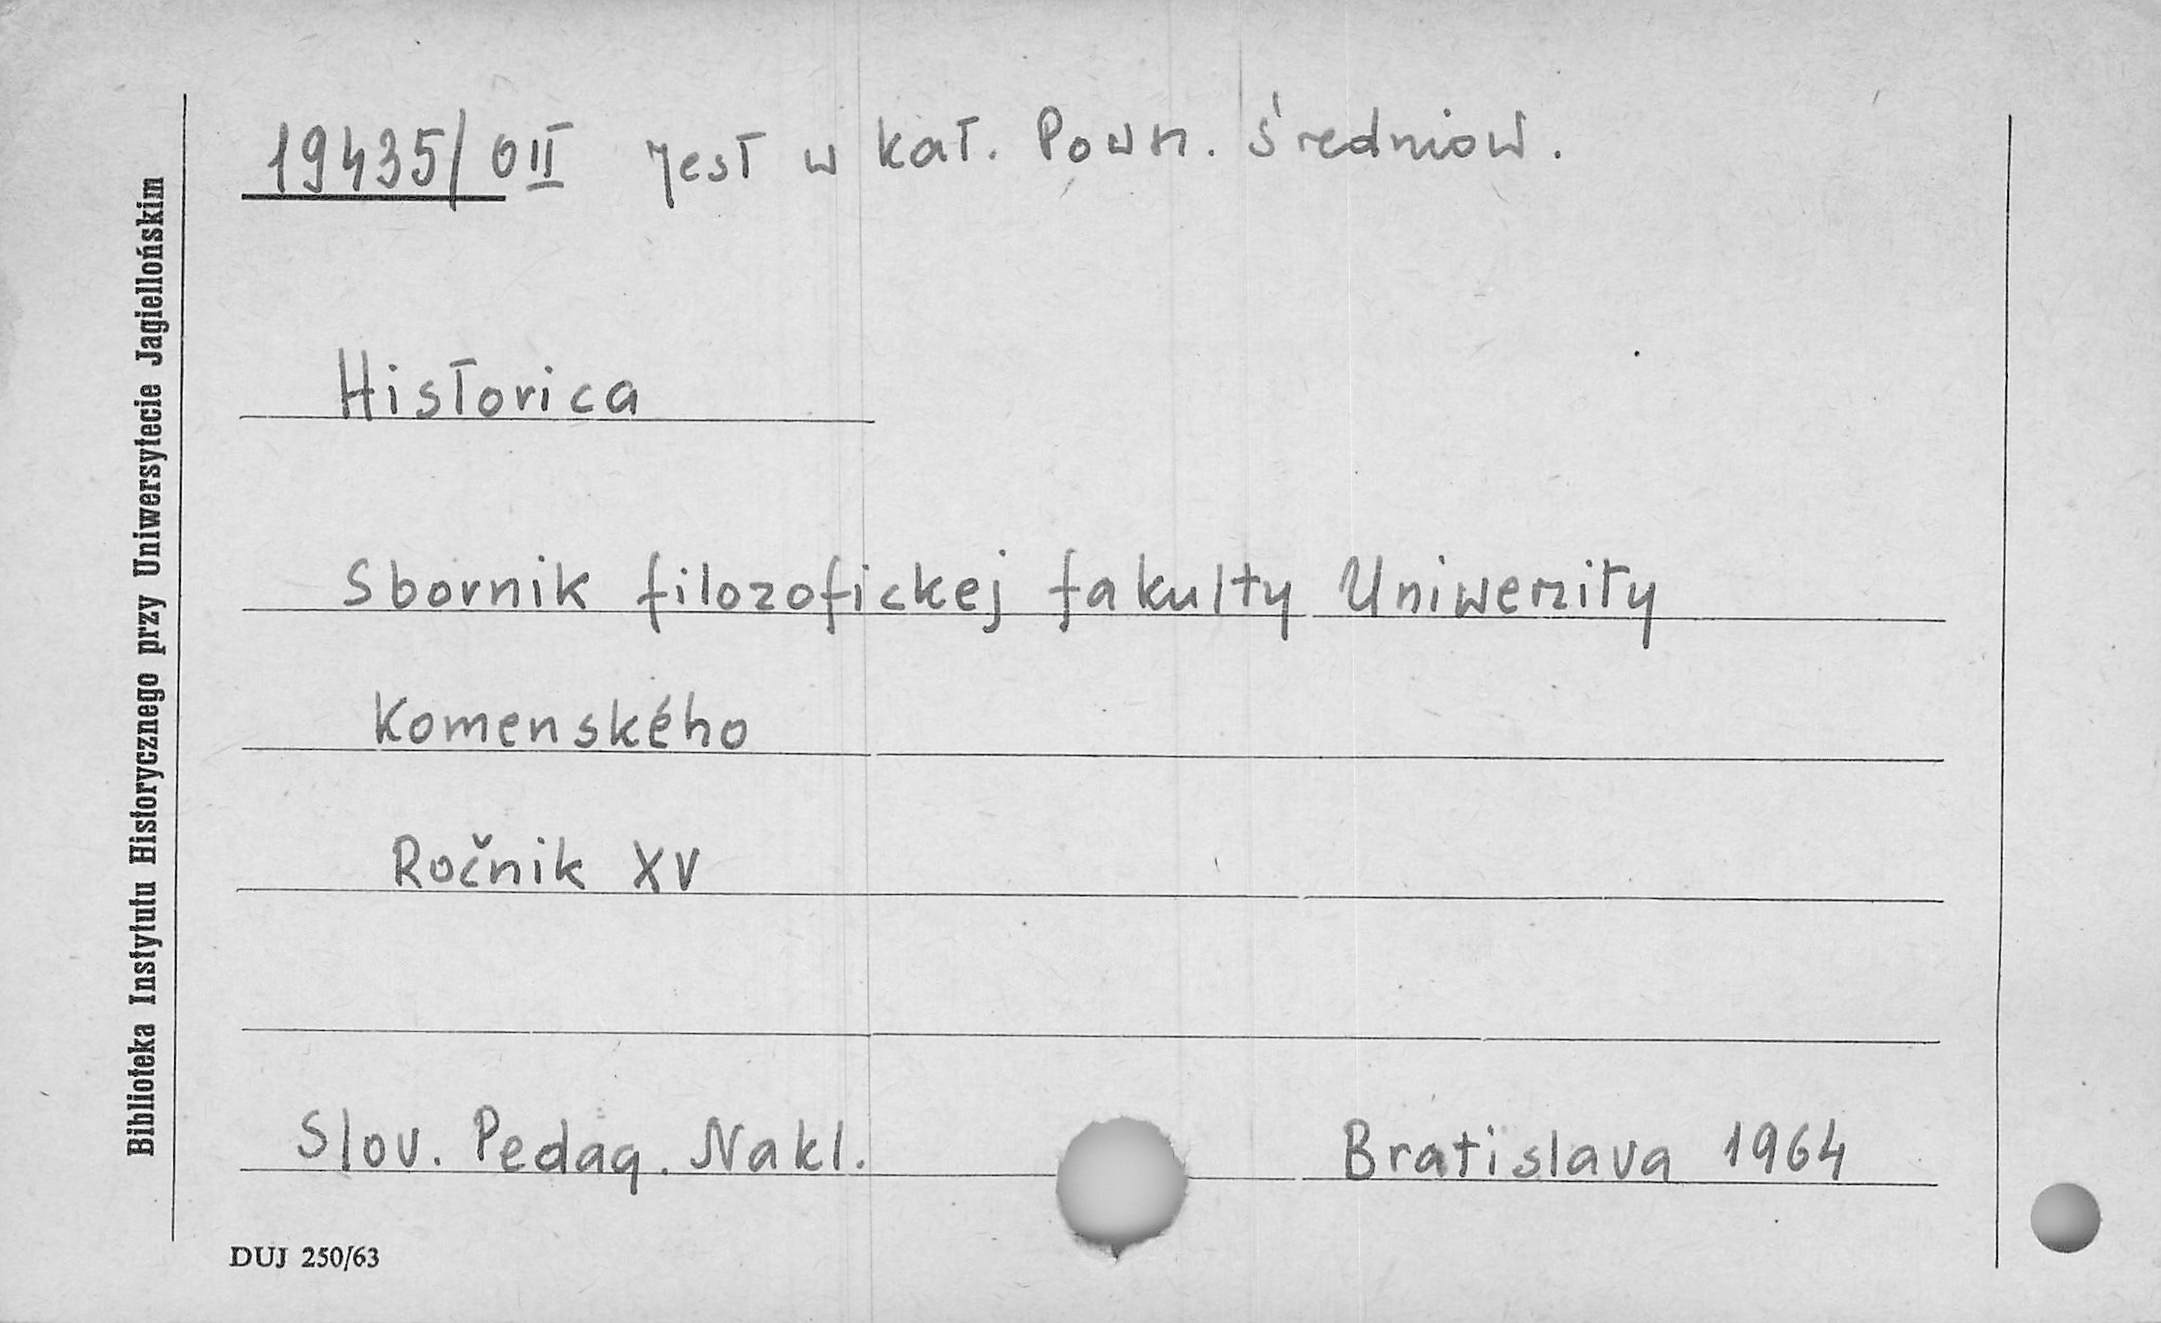 19435/OII jest w kat. Pown. średniow.
Historica
Sbornik filozofickej fakulty Uniwerzity
Komenského
Ročnik XV
Slov. Pedag. Nakl. Bratislava 1964
DUJ 250/63
Biblioteka Instytutu Historycznego przy Uniwersytecie Jagiellońskim